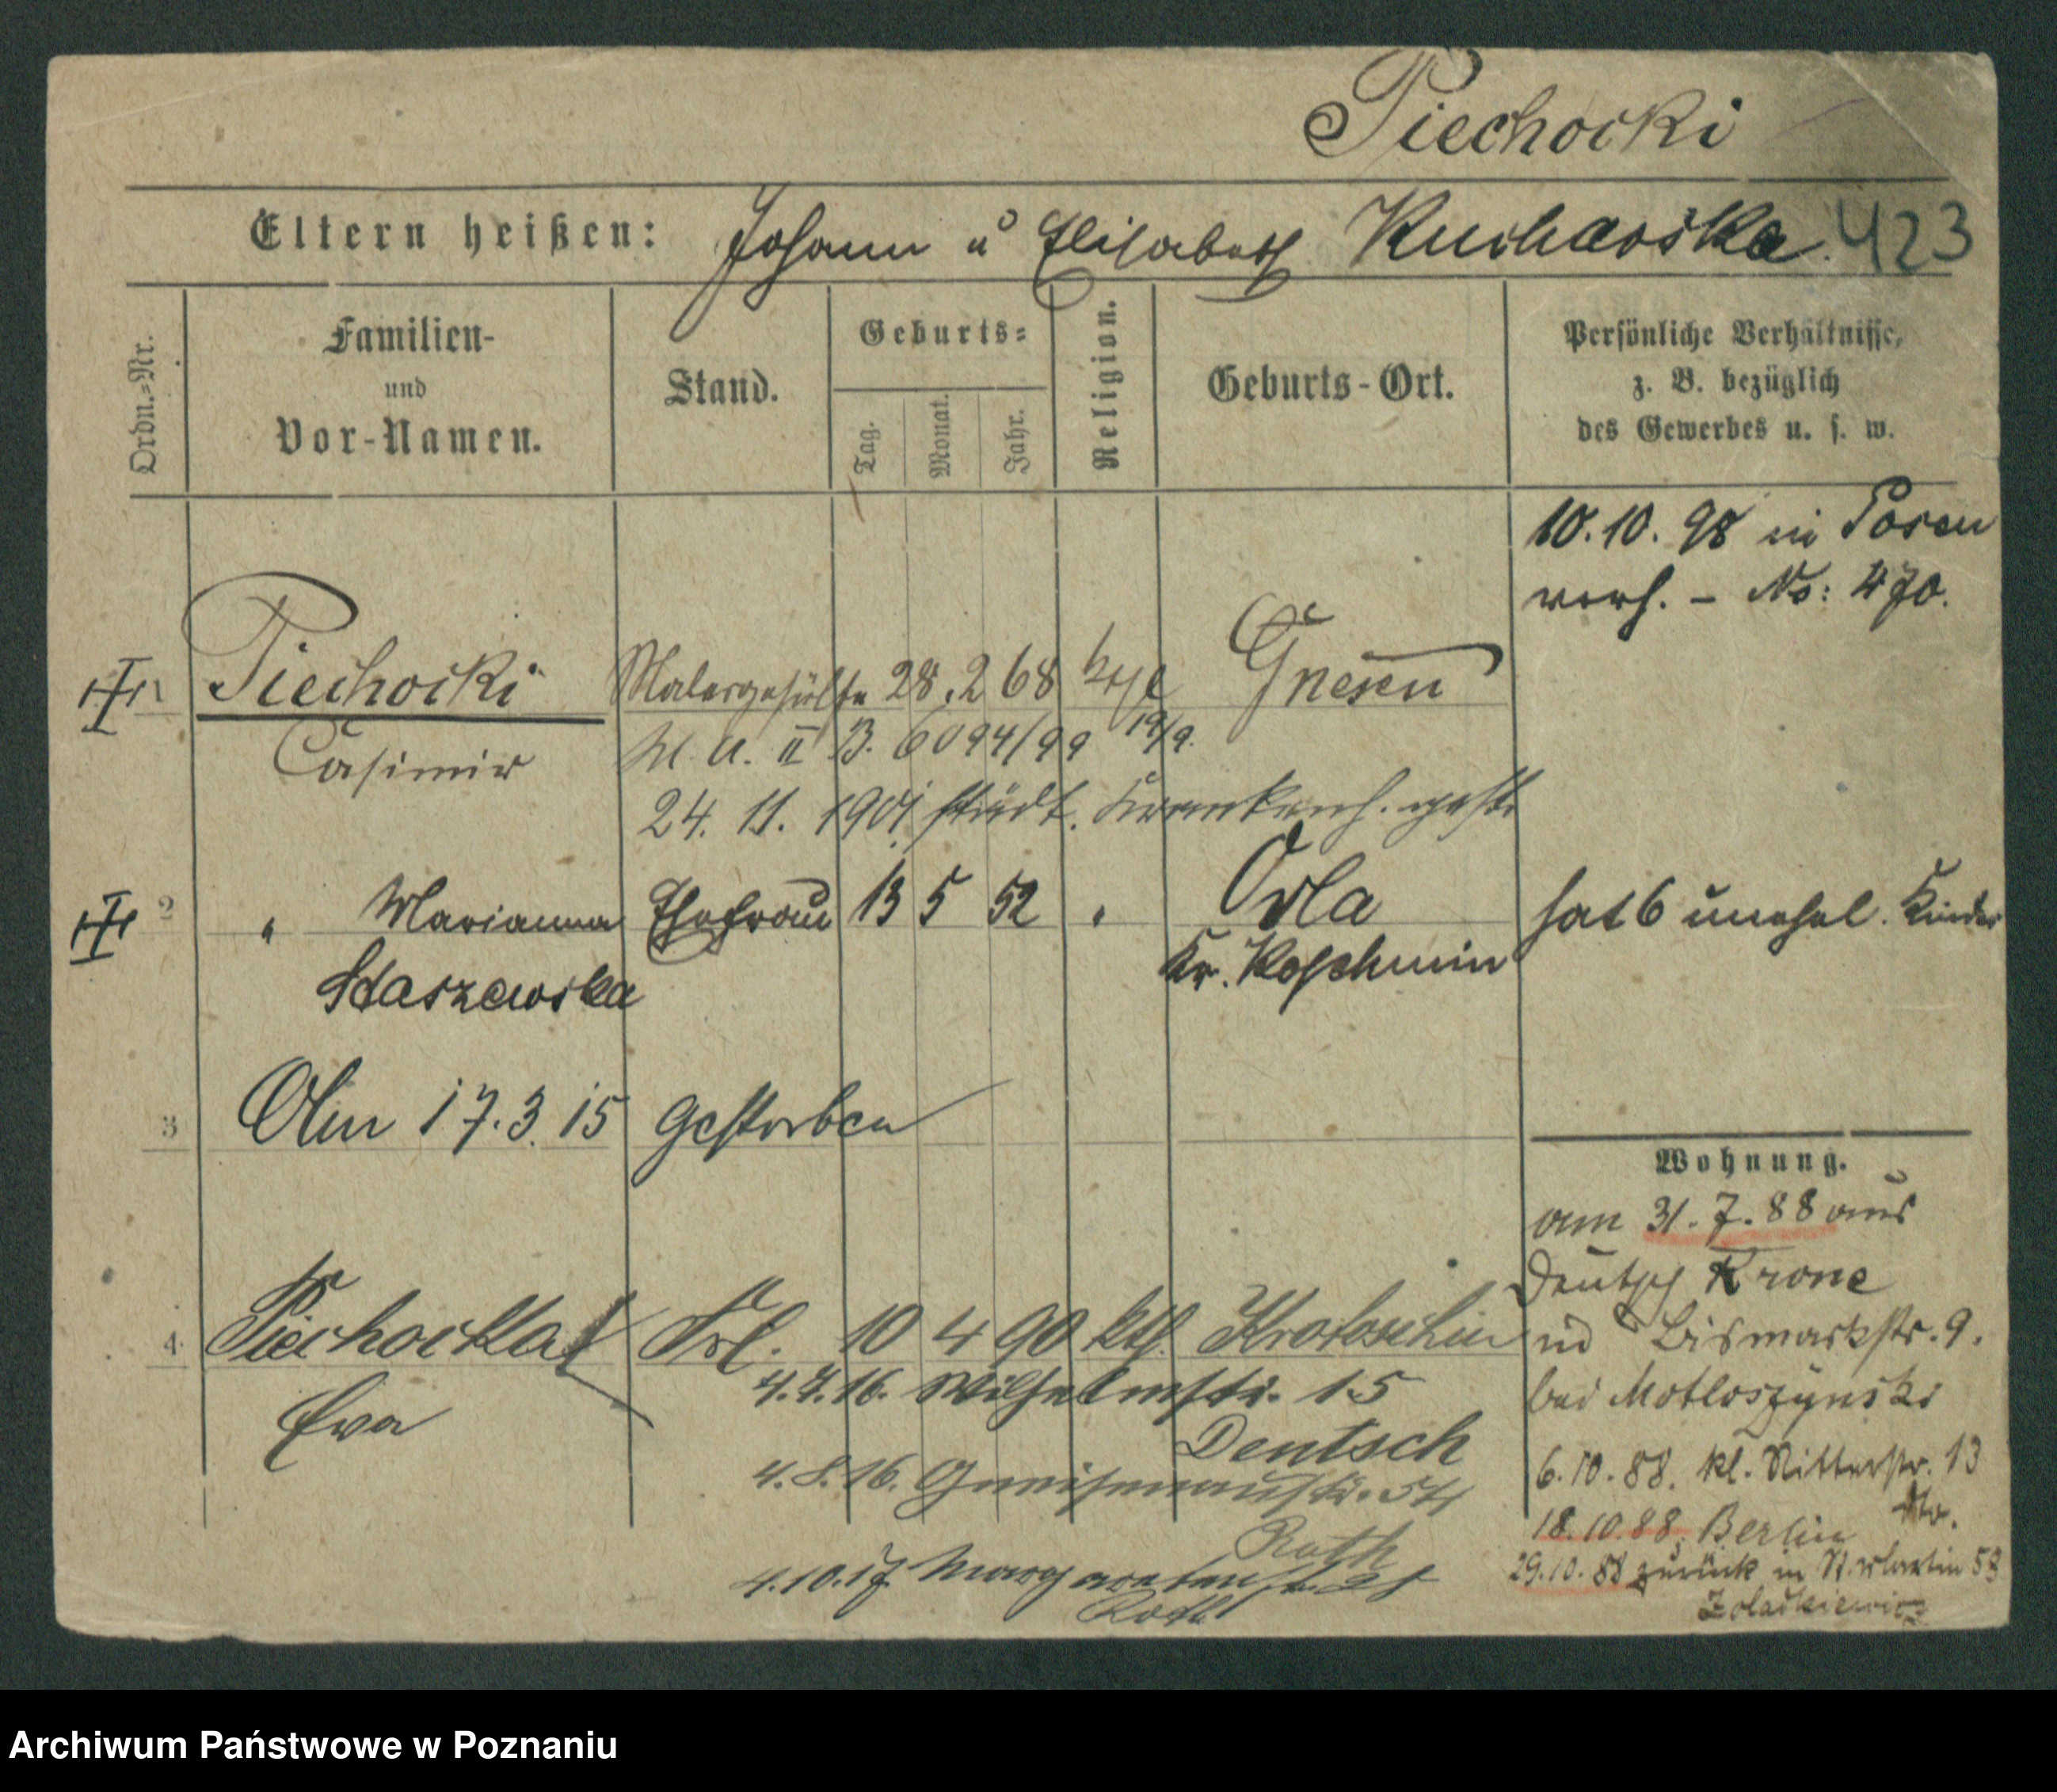 Piechocki
Eltern heißen: Johann u Elisabeth Kucharska. 423
Ordn.-Nr.
Familien-
und
Vor-Namen.
Stand.
Geburts-
Tag.
Monat.
Jahr.
Religion.
Geburts-Ort.
Persönliche Verhältnisse,
z. B. bezüglich
des Gewerbes u. s. w.
10.10.98 in Posen
verh. – No: 470.
1 Piechocki Malergehülfe 28.2 68 ktl Gnesen
Casimir
M. A. II B. 6094/99 19/9.
24. 11. 1901 städt. Krankenh. gest.
2 " Marianna Ehefrau 13 5 52 " Orla
Kr. Koschmin
hat 6 unehel. Kinder
Staszewska
3 Am 17.3.15 gestorben
Wohnung.
am 31.7.88 aus
Deutsch Krone
in Bismarkstr. 9.
bei Motloszynski
6.10.88. kl. Ritterstr. 13
18.10.88. Berlin
29.10.88 zurück in St. Martin 58
Zoladkiewicz
4 Piechocka Frl. 10 4 90 kth. Krotoschin
Eva
4.7.16. Wilhelmstr. 15
Deutsch
4.8.16. Gneisenaustr.
Roth
4.10.17 Margaretenstr.
Roth
Archiwum Państwowe w Poznaniu